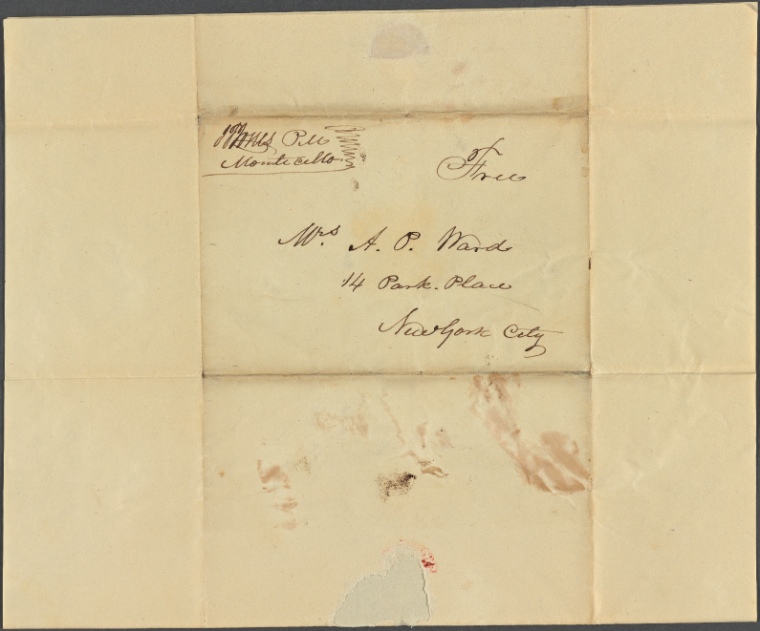 P.M
Monticello
Free
Mrs A. P. Ward
14 Park. Place
New York City